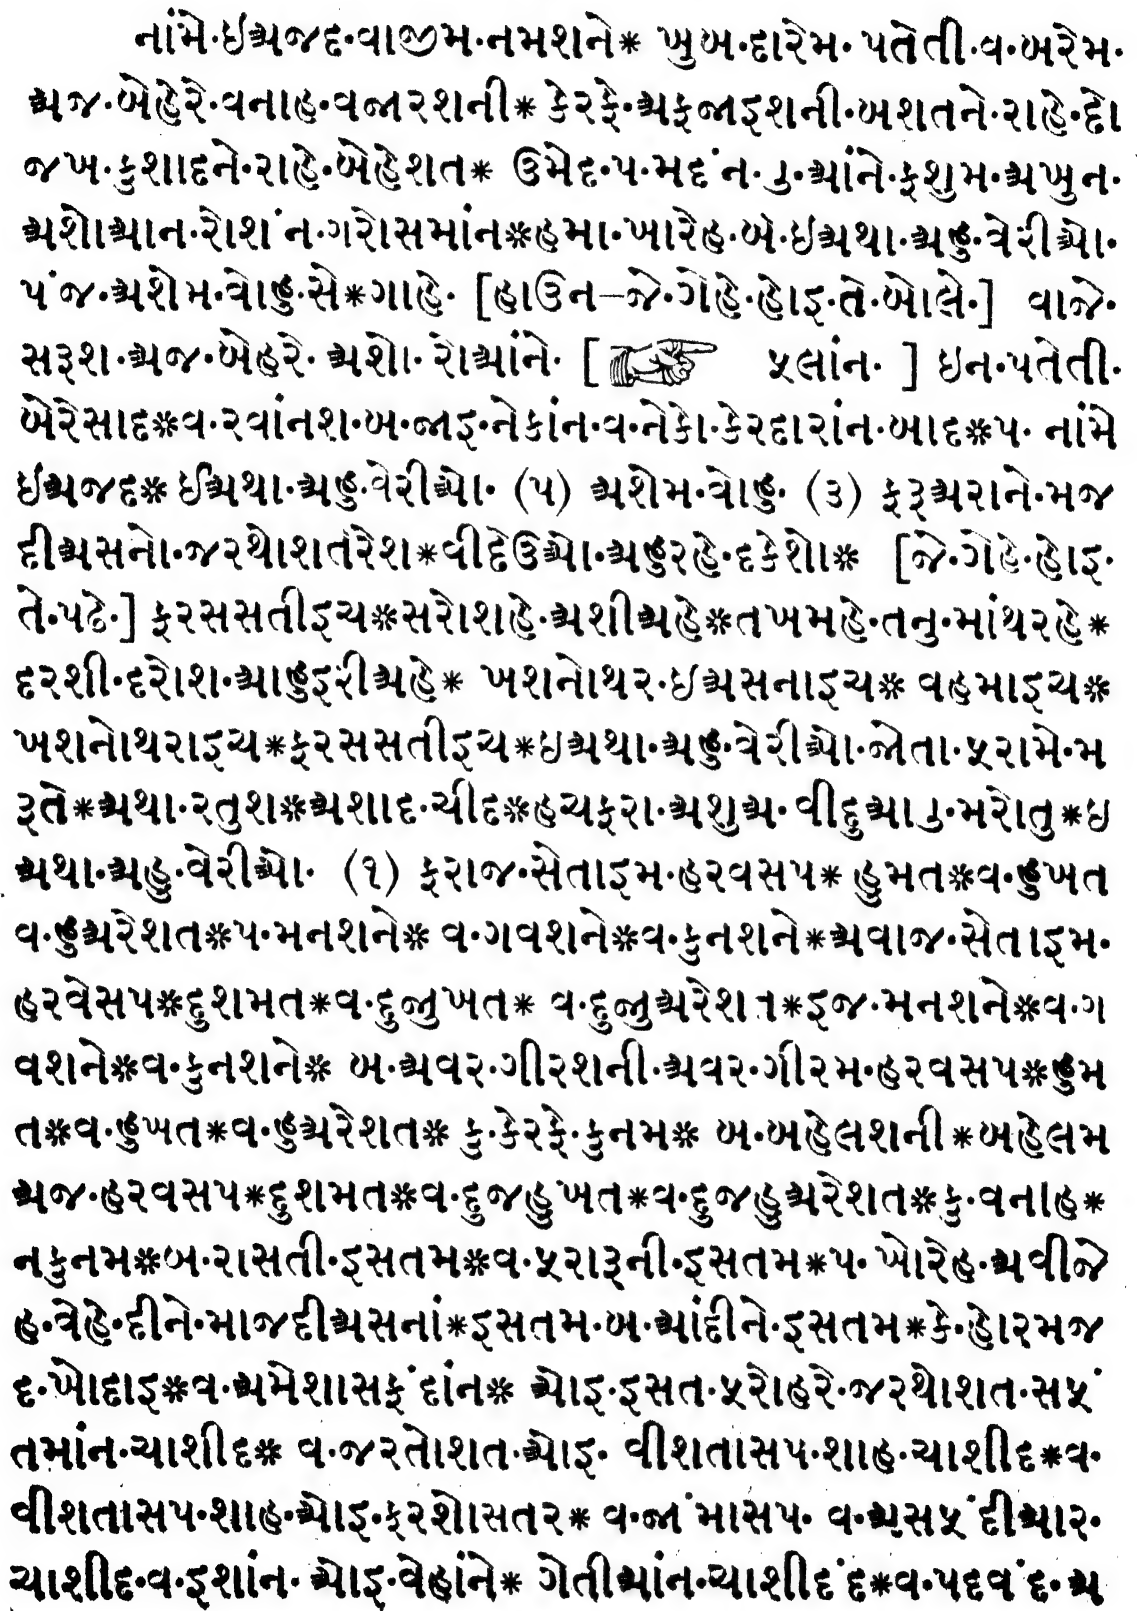 નાંમે·ઇઅજદ·વાજીમ·નમશને* ખુબ·દારેમ· પતેતી·વ·ખરેમ·
અજ·બેહેરે·વનાહ·વજારશની* કેરફે·અફજાઇશની·ખશતને·રાહે·દો
જખ·કુશાદને·રાહે·બેહેશત* ઉમેદ·પ·મદંન·ુ·આંને·ફશુમ·અખુન·
અશોઆન·રોશંન·ગરોસમાંન*હમા·ખારેહ·બે·ઇઅથા·અહુ·વેરીઓ·
પંજ·અશેમ·વોહુ·સે*ગાહે· [હાઉન–જે·ગેહે·હોઇ·તે·બોલે·] વાજે·
સરૂશ·અજ·બેહરે· અશો· રોઆંને· [☞ ફલાંન· ] ઇન·પતેતી·
બેરેસાદ*વ·રવાંનશ·ખ·જાઇ·નેકાંન·વ·નેકો·કેરદારાંન·બાદ*પ· નાંમે
ઇઅજદ* ઈઅથા·અહુ·વેરીઓ· (૫) અશેમ·વોહુ· (૩) ફરૂઅરાને·મજ
દીઅસનો·જરથોશતરેશ*વીદેઉઓ·અહુરહે·દકેશો* [જે·ગેહે·હોઇ·
તે·પઢે·] ફરસસતીઇચ*સરોશહે·અશીઅહે*તખમહે·તનુ·માંથરહે*
દરશી·દરોશ·આહુઇરીઅહે* ખશનોથર·ઇઅસનાઇચ* વહમાઇચ*
ખશનોથરાઇચ*ફરસસતીઇચ*ઇઅથા·અહુ·વેરીઓ·જોતા·ફરામે·મ
રૂતે*અથા·રતુશ*અશાદ·ચીદ*હચફરા·અશુઅ·વીદુઆુ·મરોતુ*ઇ
અથા·અહુ·વેરીઓ· (૧) ફરાજ·સેતાઇમ·હરવસપ* હુમત*વ·હુખત
વ·હુઅરેશત*પ·મનશને* વ·ગવશને*વ·કુનશને*અવાજ·સેતાઇમ·
હરવેસપ*દુશમત*વ·દુજુખત* વ·દુજુઅરેશત*ઇજ·મનશને*વ·ગ
વશને*વ·કુનશને* ખ·અવર·ગીરશની·અવર·ગીરમ·હરવસપ*હુમ
ત*વ·હુખત*વ·હુઅરેશત* કુ·કેરફે·કુનમ* ખ·ખહેલશની*ખહેલમ
અજ·હરવસપ*દુશમત*વ·દુજહુખત*વ·દુજહુઅરેશત*કુ·વનાહ*
નકુનમ*બ·રાસતી·ઇસતમ*વ·ફરારૂની·ઇસતમ*પ· ખોરેહ·અવીજે
હ·વેહે·દીને·માજદીઅસનાં*ઇસતમ·ખ·આંદીને·ઇસતમ*કે·હોરમજ
દ·ખોદાઇ*વ·અમેશાસફંદાંન* ઓઇ·ઇસત·ફરોહરે·જરથોશત·સફં
તમાંન·ચાશીદ* વ·જરતોશત·ઓઇ· વીશતાસપ·શાહ·ચાશીદ*વ·
વીશતાસપ·શાહ·ઓઇ·ફરશોસતર* વ·જાંમાસપ· વ·અસફંદીઆર·
ચાશીદ·વ·ઇશાંન· ઓઇ·વેહાંને* ગેતીઆંન·ચાશીદંદ*વ·પદવંદ·અ